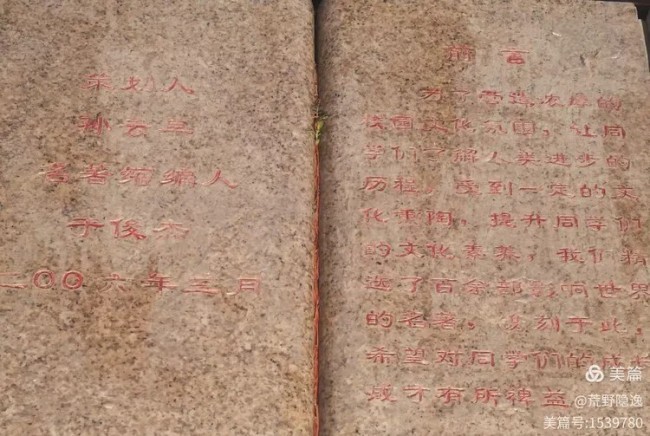 策划人
孙云生
名著缩编人
于俊杰
二〇〇六年三月
前言
为了营造浓厚的
校园文化氛围，让同
学们了解人类进步的
历程，受到一定的文
化熏陶，提升同学们
的文化素养，我们精
选了百余部影响世界
的名著，复刻于此，
希望对同学们的成长
成才有所裨益
美篇
@荒野隐逸
美篇号:1539780